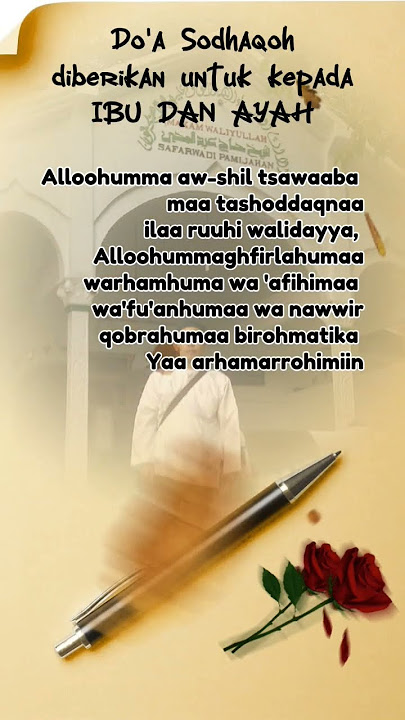 Do'A Sodhaqoh
diberikan untuk kepada
IBU DAN AYAH
MAKAM WALIYULLAH
SAFARWADI PAMIJAHAN
Alloohumma aw-shil tsawaaba
maa tashoddaqnaa
ilaa ruuhi walidayya,
Alloohummaghfirlahumaa
warhamhuma wa 'afihimaa
wa'fu'anhumaa wa nawwir
qobrahumaa birohmatika
Yaa arhamarrohimiin